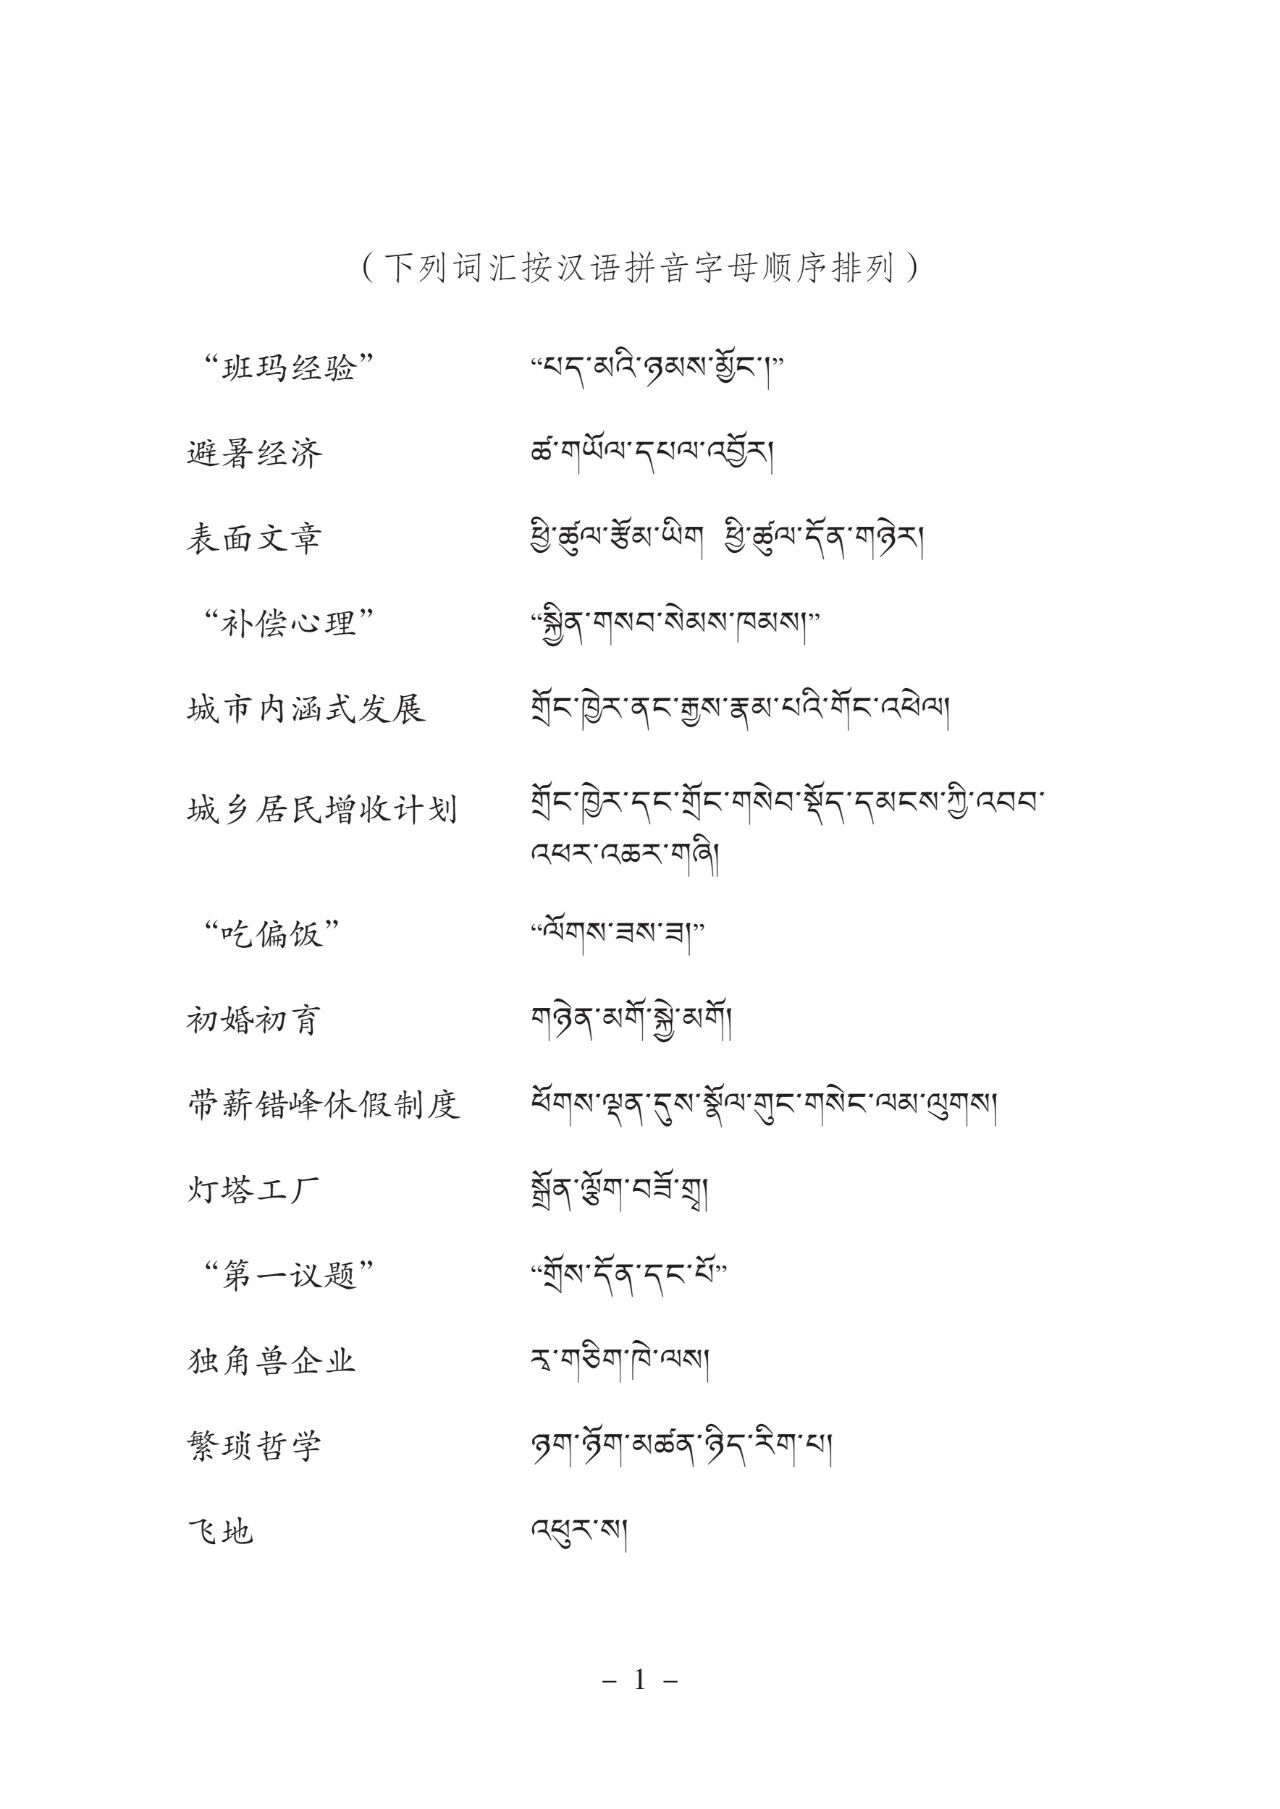 （下列词汇按汉语拼音字母顺序排列）
“班玛经验” “པད་མའི་ཉམས་མྱོང་།”
避暑经济 ཚ་གཡོལ་དཔལ་འབྱོར།
表面文章 ཕྱི་ཚུལ་རྩོམ་ཡིག ཕྱི་ཚུལ་དོན་གཉེར།
“补偿心理” “སྐྱིན་གསབ་སེམས་ཁམས།”
城市内涵式发展 གྲོང་ཁྱེར་ནང་རྒྱས་རྣམ་པའི་གོང་འཕེལ།
城乡居民增收计划 གྲོང་ཁྱེར་དང་གྲོང་གསེབ་སྡོད་དམངས་ཀྱི་འབབ་
འཕར་འཆར་གཞི།
“吃偏饭” “ལོགས་ཟས་ཟ།”
初婚初育 གཉེན་མགོ་སྐྱེ་མགོ།
带薪错峰休假制度 ཕོགས་ལྡན་དུས་སྣོལ་གུང་གསེང་ལམ་ལུགས།
灯塔工厂 སྒྲོན་ལྕོག་བཟོ་གྲྭ།
“第一议题” “གྲོས་དོན་དང་པོ”
独角兽企业 རྭ་གཅིག་ཁེ་ལས།
繁琐哲学 ཉག་ཉོག་མཚན་ཉིད་རིག་པ།
飞地 འཕུར་ས།
– 1 –